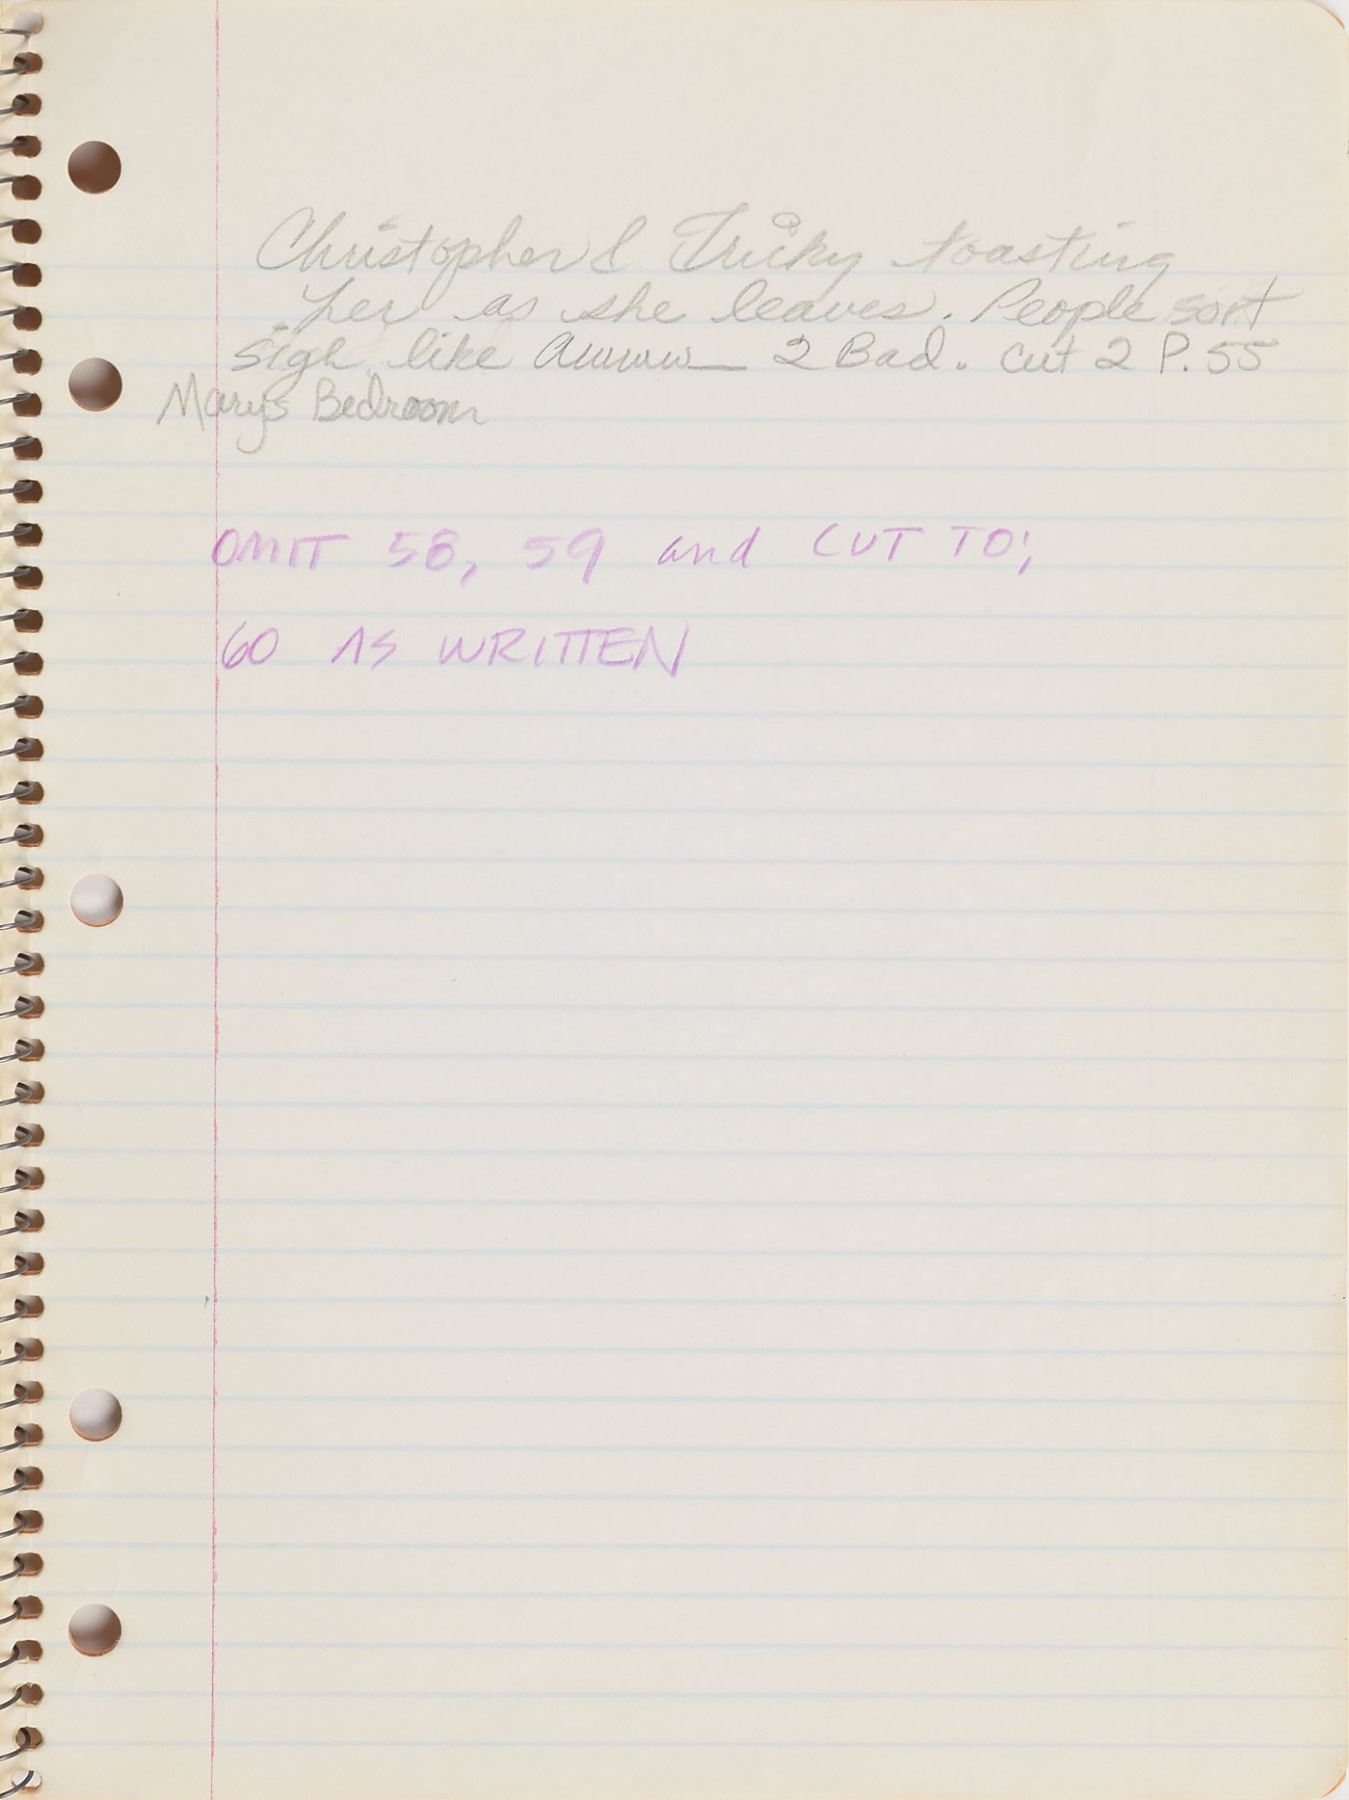 Christopher & Tricky toasting
her as she leaves. People sort
sigh like Awwww__ 2 Bad. Cut 2 P. 55
Marys Bedroom
OMIT 58, 59 and CUT TO;
60 AS WRITTEN